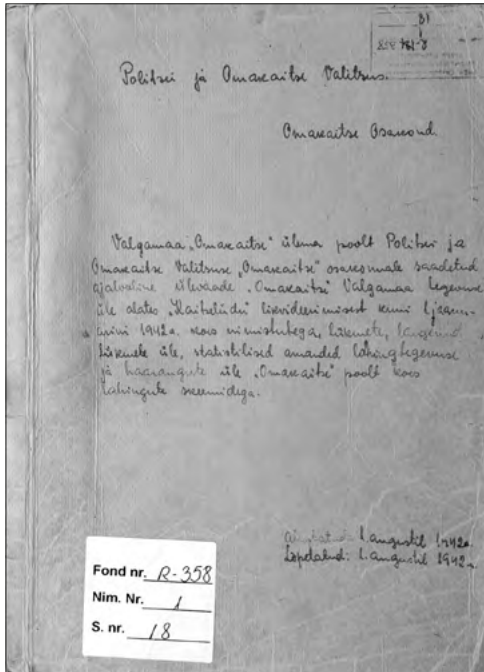 18
Politsei ja Omakaitse Valitsus.
Omakaitse Osakond.
Valgamaa „Omakaitse" ülema poolt Politsei ja
Omakaitse Valitsuse „Omakaitse" osakonnale saadetud
ajalooline ülevaade „Omakaitse" Valgamaa tegevuse
üle alates „Kaitseliidu" likvideerimisest kuni 1 jaanu-
arini 1942a. koos nimistutega, liikmete, langenud
liikmete üle, statistilised andmed lahingtegevuse
ja haarangute üle „Omakaitse" poolt koos
lahingute skeemidega.
1. augustil 1942a.
Lõpetatud: 1. augustil 1942a.
Fond nr. R-358
Nim. Nr. 1
S. nr. 18